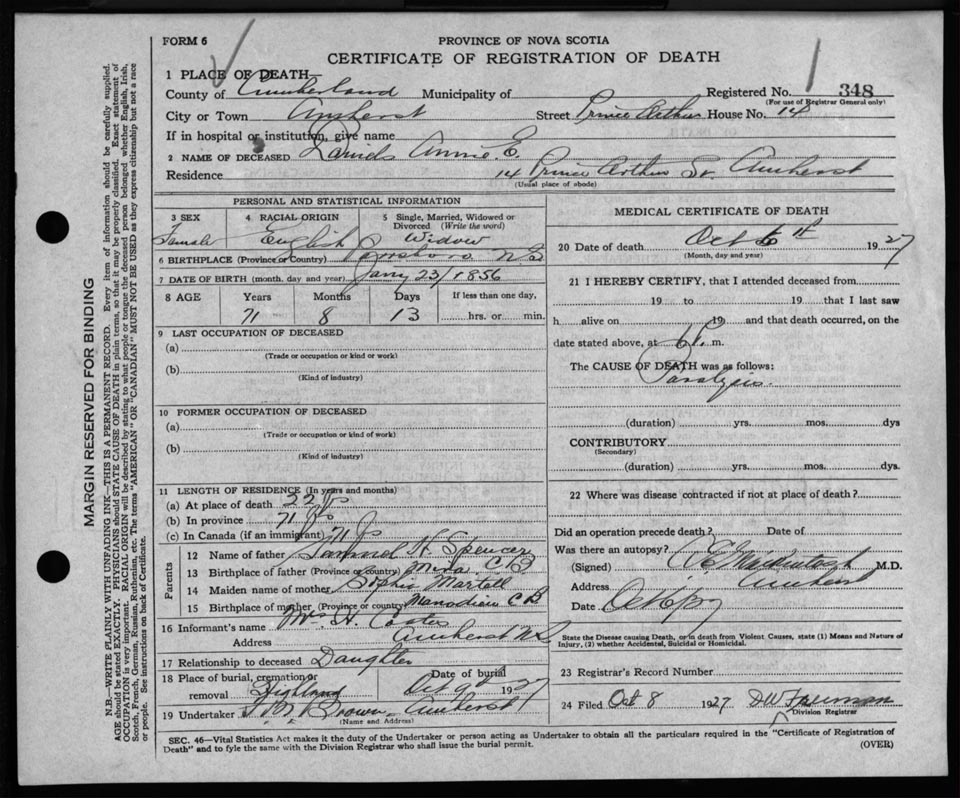 FORM 6
PROVINCE OF NOVA SCOTIA
CERTIFICATE OF REGISTRATION OF DEATH
1 PLACE OF DEATH—
County of Cumberland Municipality of Registered No. 348
(For use of Registrar General only)
City or Town Amherst Street Prince Arthur House No. 14
If in hospital or institution, give name
2 NAME OF DECEASED Annie E.
Residence 14 Prince Arthur St. Amherst
(Usual place of abode)
PERSONAL AND STATISTICAL INFORMATION
3 SEX 4 RACIAL ORIGIN 5 Single, Married, Widowed or Divorced (Write the word)
Female English Widow
6 BIRTHPLACE (Province or Country) Parrsboro N.S.
7 DATE OF BIRTH (month, day and year) Jany 23/1856
8 AGE Years Months Days If less than one day,
71 8 13 hrs. or min.
9 LAST OCCUPATION OF DECEASED
(a)
(Trade or occupation or kind or work)
(b)
(Kind of industry)
10 FORMER OCCUPATION OF DECEASED
(a)
(Trade or occupation or kind of work)
(b)
(Kind of industry)
11 LENGTH OF RESIDENCE (In years and months)
(a) At place of death 22 yrs
(b) In province 71 yrs
(c) In Canada (if an immigrant) 71 yrs
Parents
12 Name of father Samuel H. Spencer
13 Birthplace of father (Province or country) Mira C B
14 Maiden name of mother Sophia Martell
15 Birthplace of mother (Province or country) Manadieu C B
16 Informant's name Mrs H.
Address Amherst N.S.
17 Relationship to deceased Daughter
18 Place of burial, cremation or removal Highland Date of burial Oct 9th 1927
19 Undertaker Brown Amherst
(Name and Address)
MEDICAL CERTIFICATE OF DEATH
20 Date of death Oct 6th 1927
(Month, day and year)
21 I HEREBY CERTIFY, that I attended deceased from
19 to 19 that I last saw
h alive on 19 and that death occurred, on the
date stated above, at 6 P. m.
The CAUSE OF DEATH was as follows:
Paralysis
(duration) yrs. mos. dys
CONTRIBUTORY
(Secondary)
(duration) yrs. mos. dys.
22 Where was disease contracted if not at place of death?
Did an operation precede death? Date of
Was there an autopsy?
(Signed) McKintosh M.D.
Address Amherst
Date Oct 8/27
State the Disease causing Death, or in death from Violent Causes, state (1) Means and Nature of
Injury, (2) whether Accidental, Suicidal or Homicidal.
23 Registrar's Record Number
24 Filed Oct 8 1927 DW Freeman
Division Registrar
SEC. 46—Vital Statistics Act makes it the duty of the Undertaker or person acting as Undertaker to obtain all the particulars required in the "Certificate of Registration of
Death" and to fyle the same with the Division Registrar who shall issue the burial permit. (OVER)
MARGIN RESERVED FOR BINDING
N.B.—WRITE PLAINLY WITH UNFADING INK—THIS IS A PERMANENT RECORD. Every item of information should be carefully supplied.
AGE should be stated EXACTLY. PHYSICIANS should STATE CAUSE OF DEATH in plain terms, so that it may be properly classified. Exact statement of
OCCUPATION is very important. RACIAL ORIGIN will be described by stating to what people or tongue the deceased person belonged whether English, Irish,
Scotch, French, German, Russian, Ruthenian, etc. The terms "AMERICAN" OR "CANADIAN" MUST NOT BE USED as they express citizenship but not a race
or people. See instructions on back of Certificate.